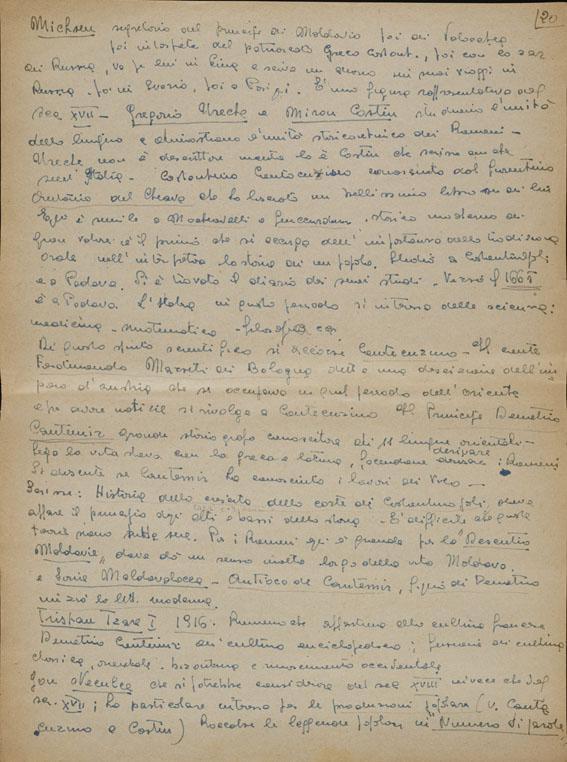 20
Michsen segretario del principe di Moldavia poi di Valacchia
poi interprete del patriarcato Greco Costant., poi con lo zar
di Russia, va per lui in Cina e scrive un diario sui suoi viaggi in
Russia. Poi in Svezia, poi a Parigi. È una figura rappresentativa del
sec XVII – Gregorio Urecte e Miron Costin studiano l'unità
della lingua e dimostrano l'unità storico etnica dei Rumeni –
Urecte non è descrittore mentre lo è Costin che scrisse anche
sull'Italia – Costantino Cantacuzino conosciuto dal fiorentino
Antonio del Chiaro che ha lasciato un bellissimo libro su di lui
Egli è simile a Machiavelli e Guicciardini. Storico moderno di
gran valore: è il primo che si accorge dell'importanza della tradizione
orale nell'interpretare la storia di un popolo. Studiò a Costantinopoli
e a Padova. Si è trovato il diario dei suoi studi. Verso il 1667
è a Padova. L'Italia in questo periodo si interessa delle scienze:
medicina – matematica – filosofia ecc.
Di questo spirito scientifico si accorse Cantacuzino – Il conte
Ferdinando Marsili di Bologna dette una descrizione dell'im
pero d'Austria che si occupava in quel periodo dell'oriente
e per avere notizie si rivolge a Cantacuzino. Il Principe Demetrio
Cantimir grande storiografo conoscitore di 11 lingue orientali –
lega la vita slava con la greca e latina, facendone derivare i Rumeni
Si discute se Cantemir ha conosciuto i lavori di Vico –
Scrisse: Historia della crescita della corte di Costantinopoli, dove
il principio degli alti e bassi della storia – È difficile che queste
teorie siano sue. Per i Rumeni egli è grande per la "Descritio
Moldaviae", dove dà un senso molto largo della vita Moldava.
e Storia Moldavalacca – Antioco de Cantemir, figlio di Demetrio
iniziò la lett. moderna.
Tristan Tzara I 1916. Rumeno che alla cultura francese
Demetrio Cantimir di cultura enciclopedica; fusione di cultura
classica, orientale, bizantina e rinascimento occidentale
Jon Neculce che si potrebbe considerare del sec XVIII invece che del
sec. XVII; ha particolare interesse per la produzione popolare (v. Canta
cuzino e Costin) Raccolse le leggende popolari in "Numero di parole"